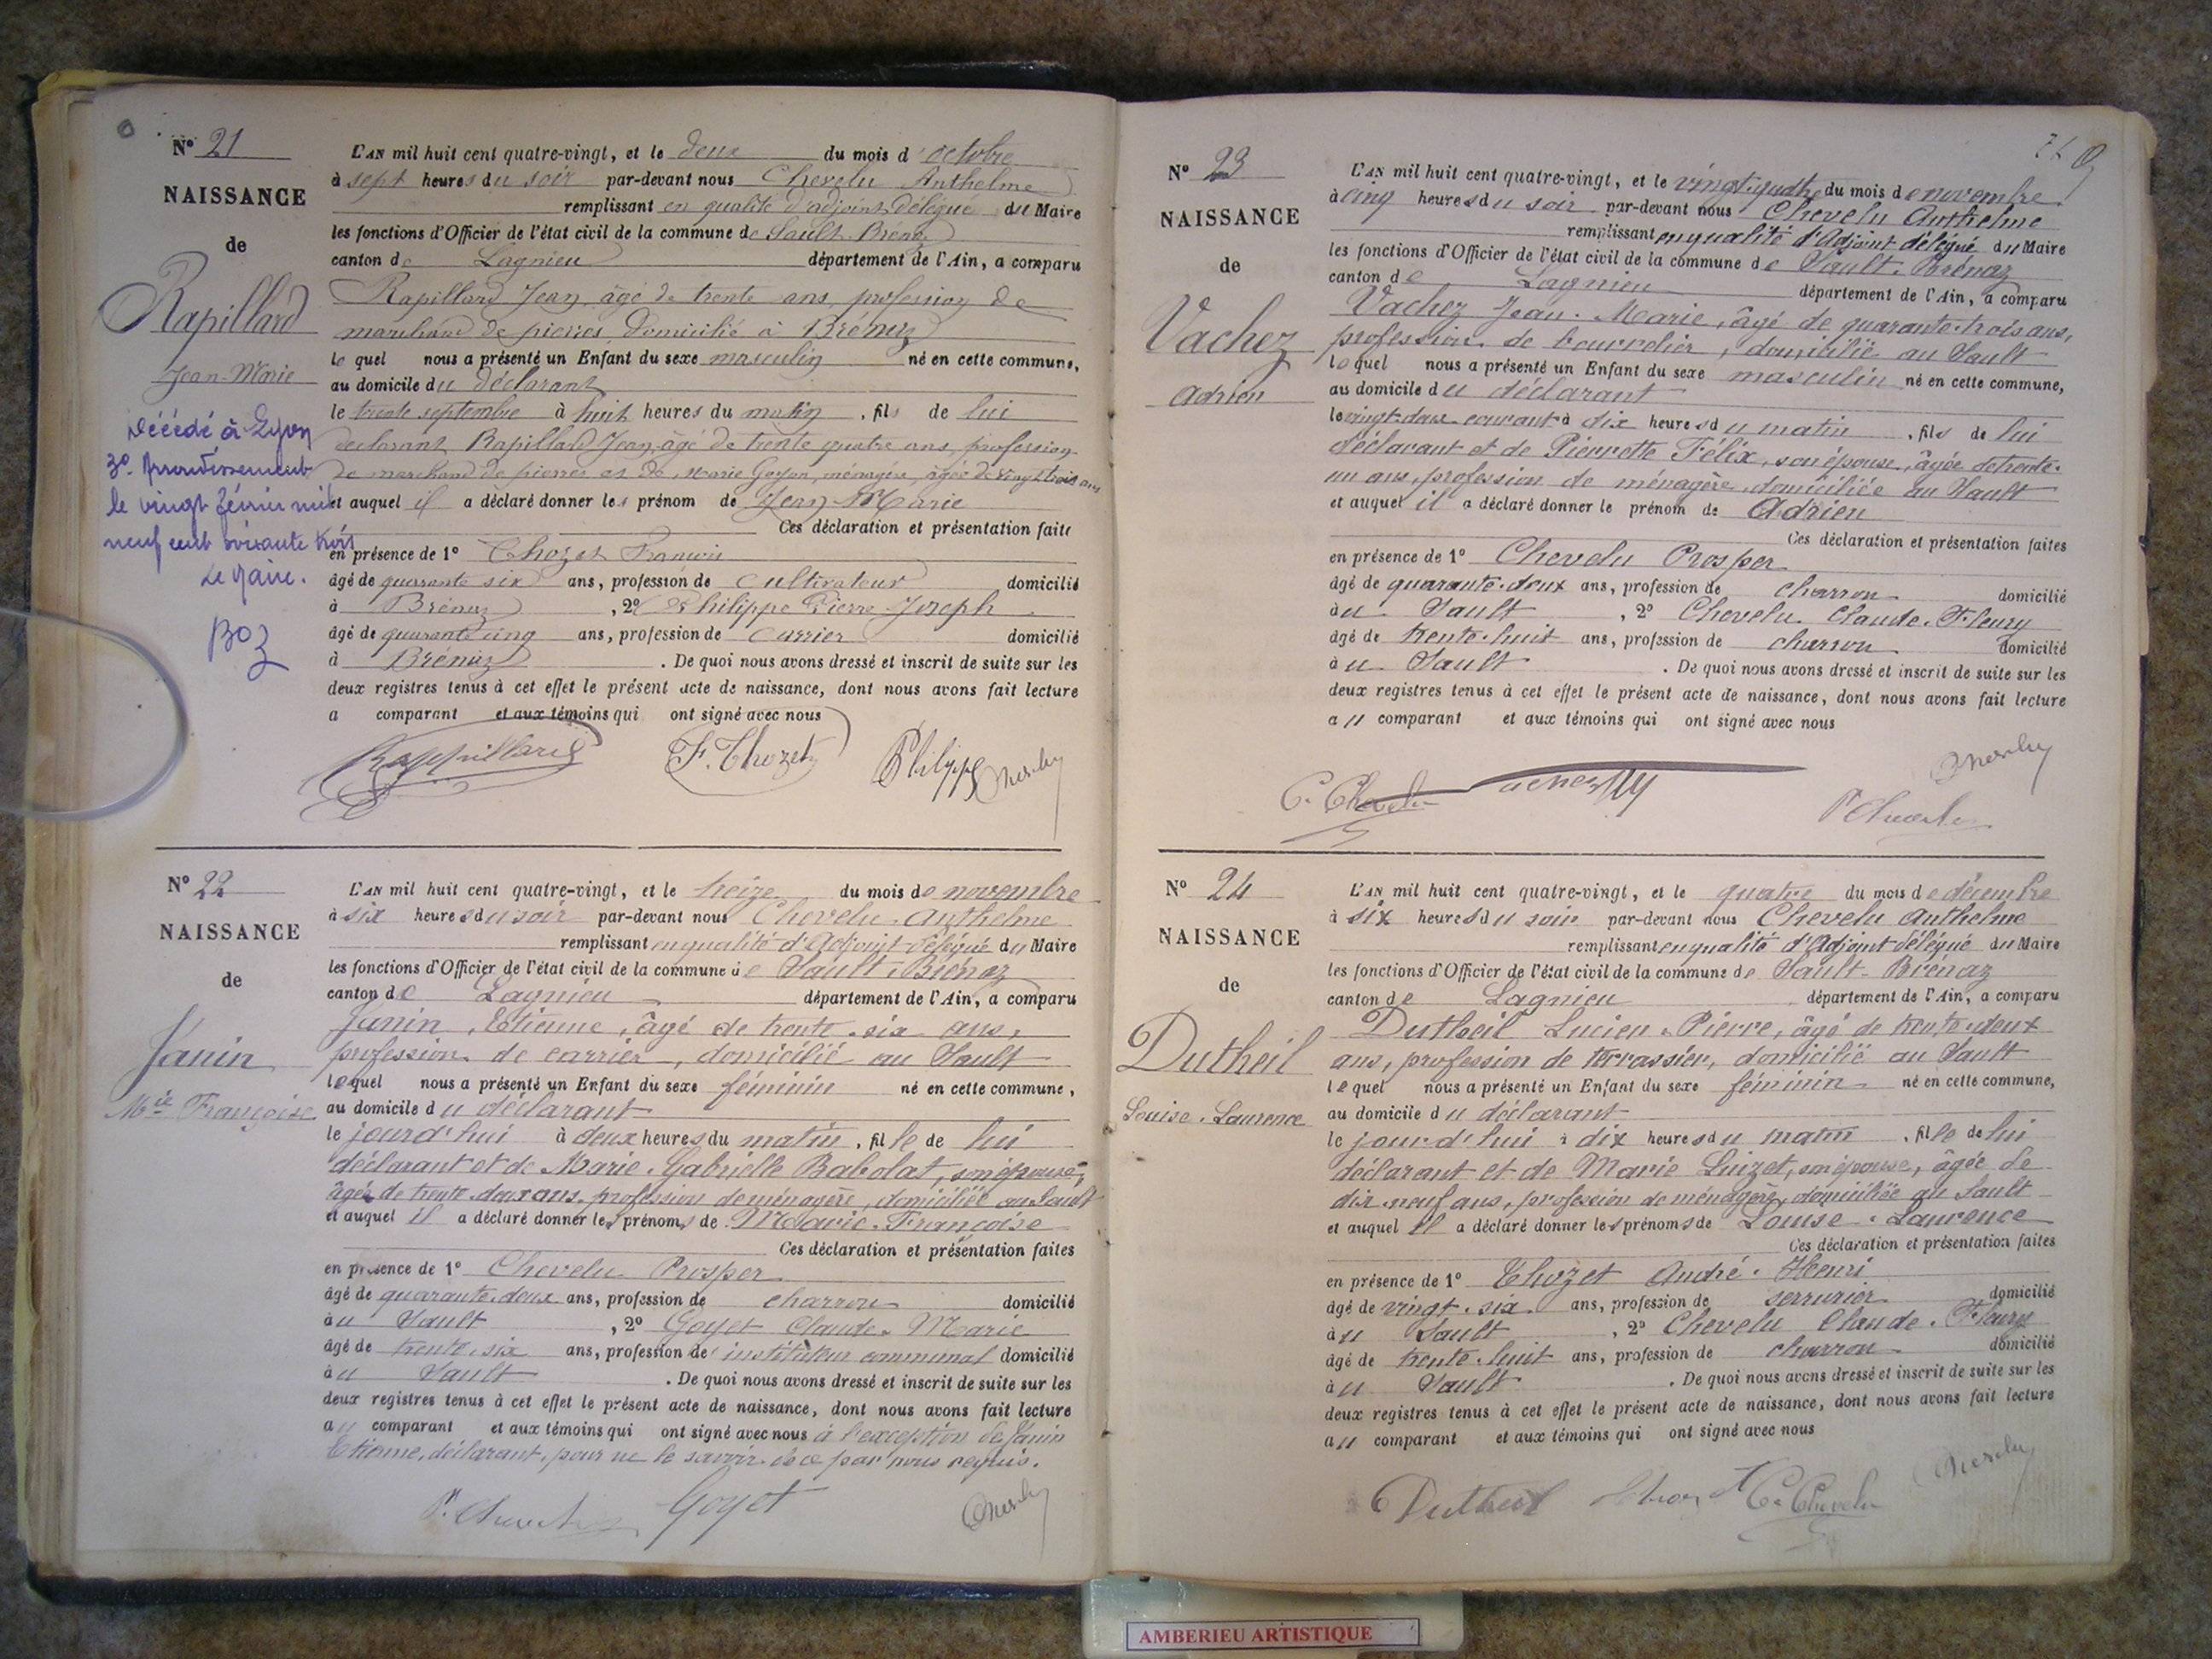 N° 21
NAISSANCE
de
Rapillard
Jean-Marie
Décédé à Lyon
3e Arrondissement
le vingt février mil
neuf cent soixante trois
Le Maire.
L'AN mil huit cent quatre-vingt, et le deux du mois d'octobre
à sept heures du soir par-devant nous Chevelu Anthelme
remplissant en qualité d'adjoint délégué du Maire
les fonctions d'Officier de l'état civil de la commune de Sault-Brénaz
canton de Lagnieu département de l'Ain, a comparu
Rapillard Jean, âgé de trente ans, profession de
marchand de pierres, domicilié à Brénaz
lequel nous a présenté un Enfant du sexe masculin né en cette commune,
au domicile du déclarant
le trente septembre à huit heures du matin, fils de lui
déclarant Rapillard Jean, âgé de trente quatre ans, profession
de marchand de pierres et de Marie Goyon, ménagère, âgée de vingt trois ans
et auquel il a déclaré donner les prénom de Jean Marie
Ces déclaration et présentation faite
en présence de 1° Thozet François
âgé de quarante six ans, profession de cultivateur domicilié
à Brénaz, 2° Philippe Pierre Joseph
âgé de quarante cinq ans, profession de carrier domicilié
à Brénaz. De quoi nous avons dressé et inscrit de suite sur les
deux registres tenus à cet effet le présent acte de naissance, dont nous avons fait lecture
a comparant et aux témoins qui ont signé avec nous
Rappillard F. Thozet Philippe Chevelu
N° 22
NAISSANCE
de
Janin
Mie Françoise
L'AN mil huit cent quatre-vingt, et le treize du mois de novembre
à six heures du soir par-devant nous Chevelu Anthelme
remplissant en qualité d'Adjoint délégué du Maire
les fonctions d'Officier de l'état civil de la commune de Sault-Brénaz
canton de Lagnieu département de l'Ain, a comparu
Janin, Etienne, âgé de trente-six ans,
profession de carrier, domicilié au Sault
lequel nous a présenté un Enfant du sexe féminin né en cette commune,
au domicile du déclarant
le jourd'hui à deux heures du matin, fille de lui
déclarant et de Marie-Gabrielle Babolat, son épouse,
âgée de trente-deux ans, profession de ménagère, domiciliée au Sault
et auquel il a déclaré donner les prénoms de Marie-Françoise
Ces déclaration et présentation faites
en présence de 1° Chevelu Prosper
âgé de quarante-deux ans, profession de charron domicilié
au Sault, 2° Goyet Claude-Marie
âgé de trente-six ans, profession de instituteur communal domicilié
au Sault. De quoi nous avons dressé et inscrit de suite sur les
deux registres tenus à cet effet le présent acte de naissance, dont nous avons fait lecture
au comparant et aux témoins qui ont signé avec nous à l'exception de Janin
Etienne, déclarant, pour ne le savoir de ce par nous requis.
P. Chevelu Goyet Chevelu
N° 23
NAISSANCE
de
Vachez
Adrien
L'AN mil huit cent quatre-vingt, et le vingt-quatre du mois de novembre
à cinq heures du soir par-devant nous Chevelu Anthelme
remplissant en qualité d'Adjoint délégué du Maire
les fonctions d'Officier de l'état civil de la commune de Sault-Brénaz
canton de Lagnieu département de l'Ain, a comparu
Vachez Jean-Marie, âgé de quarante-trois ans,
profession de bourrelier, domicilié au Sault
lequel nous a présenté un Enfant du sexe masculin né en cette commune,
au domicile du déclarant
le vingt-deux courant à dix heures du matin, fils de lui
déclarant et de Pierrette Félix, son épouse, âgée de trente-
un ans, profession de ménagère, domiciliée au Sault
et auquel il a déclaré donner le prénom de Adrien
Ces déclaration et présentation faites
en présence de 1° Chevelu Prosper
âgé de quarante-deux ans, profession de charron domicilié
au Sault, 2° Chevelu Claude-Fleury
âgé de trente-huit ans, profession de charron domicilié
au Sault. De quoi nous avons dressé et inscrit de suite sur les
deux registres tenus à cet effet le présent acte de naissance, dont nous avons fait lecture
au comparant et aux témoins qui ont signé avec nous
C. Chevelu P. Chevelu Chevelu
N° 24
NAISSANCE
de
Dutheil
Louise-Laurence
L'AN mil huit cent quatre-vingt, et le quatre du mois de décembre
à six heures du soir par-devant nous Chevelu Anthelme
remplissant en qualité d'Adjoint délégué du Maire
les fonctions d'Officier de l'état civil de la commune de Sault-Brénaz
canton de Lagnieu département de l'Ain, a comparu
Dutheil Lucien-Pierre, âgé de trente-deux
ans, profession de terrassier, domicilié au Sault
lequel nous a présenté un Enfant du sexe féminin né en cette commune,
au domicile du déclarant
le jourd'hui à dix heures du matin, fille de lui
déclarant et de Marie Luizet, son épouse, âgée de
dix-neuf ans, profession de ménagère, domiciliée au Sault
et auquel il a déclaré donner les prénoms de Louise-Laurence
Ces déclaration et présentation faites
en présence de 1° Thozet André-Henri
âgé de vingt-six ans, profession de serrurier domicilié
au Sault, 2° Chevelu Claude-Fleury
âgé de trente-huit ans, profession de charron domicilié
au Sault. De quoi nous avons dressé et inscrit de suite sur les
deux registres tenus à cet effet le présent acte de naissance, dont nous avons fait lecture
au comparant et aux témoins qui ont signé avec nous
Dutheil C. Chevelu Chevelu
AMBERIEU ARTISTIQUE